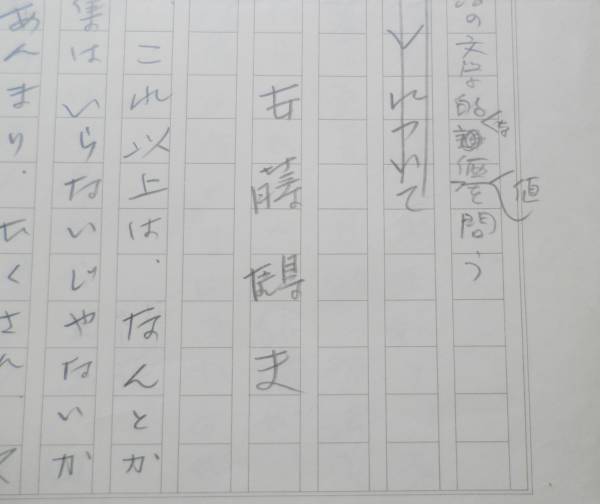 の文学的な価値を問う
しについて
安藤鶴夫
これ以上は、なんとか
集はいらないじゃないか
あんまり、たくさん